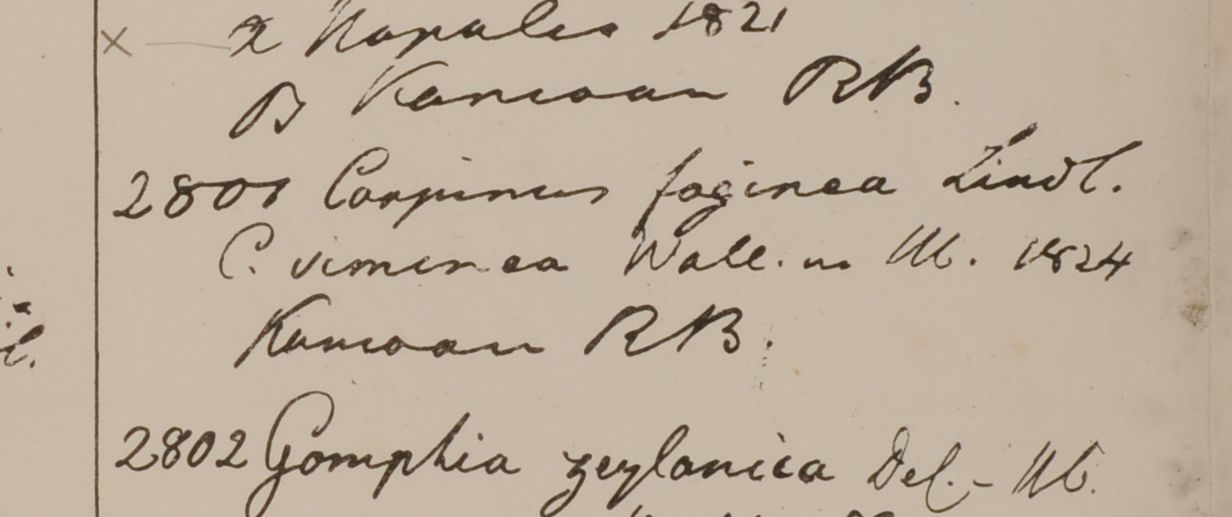 x — α Napalia 1821
B Kamoaun RB.
2801 Carpinus faginea Lindl.
C. viminea Wall. in Hb. 1824
Kumoaun RB.
2802 Gomphia zeylanica Del. - Hb.